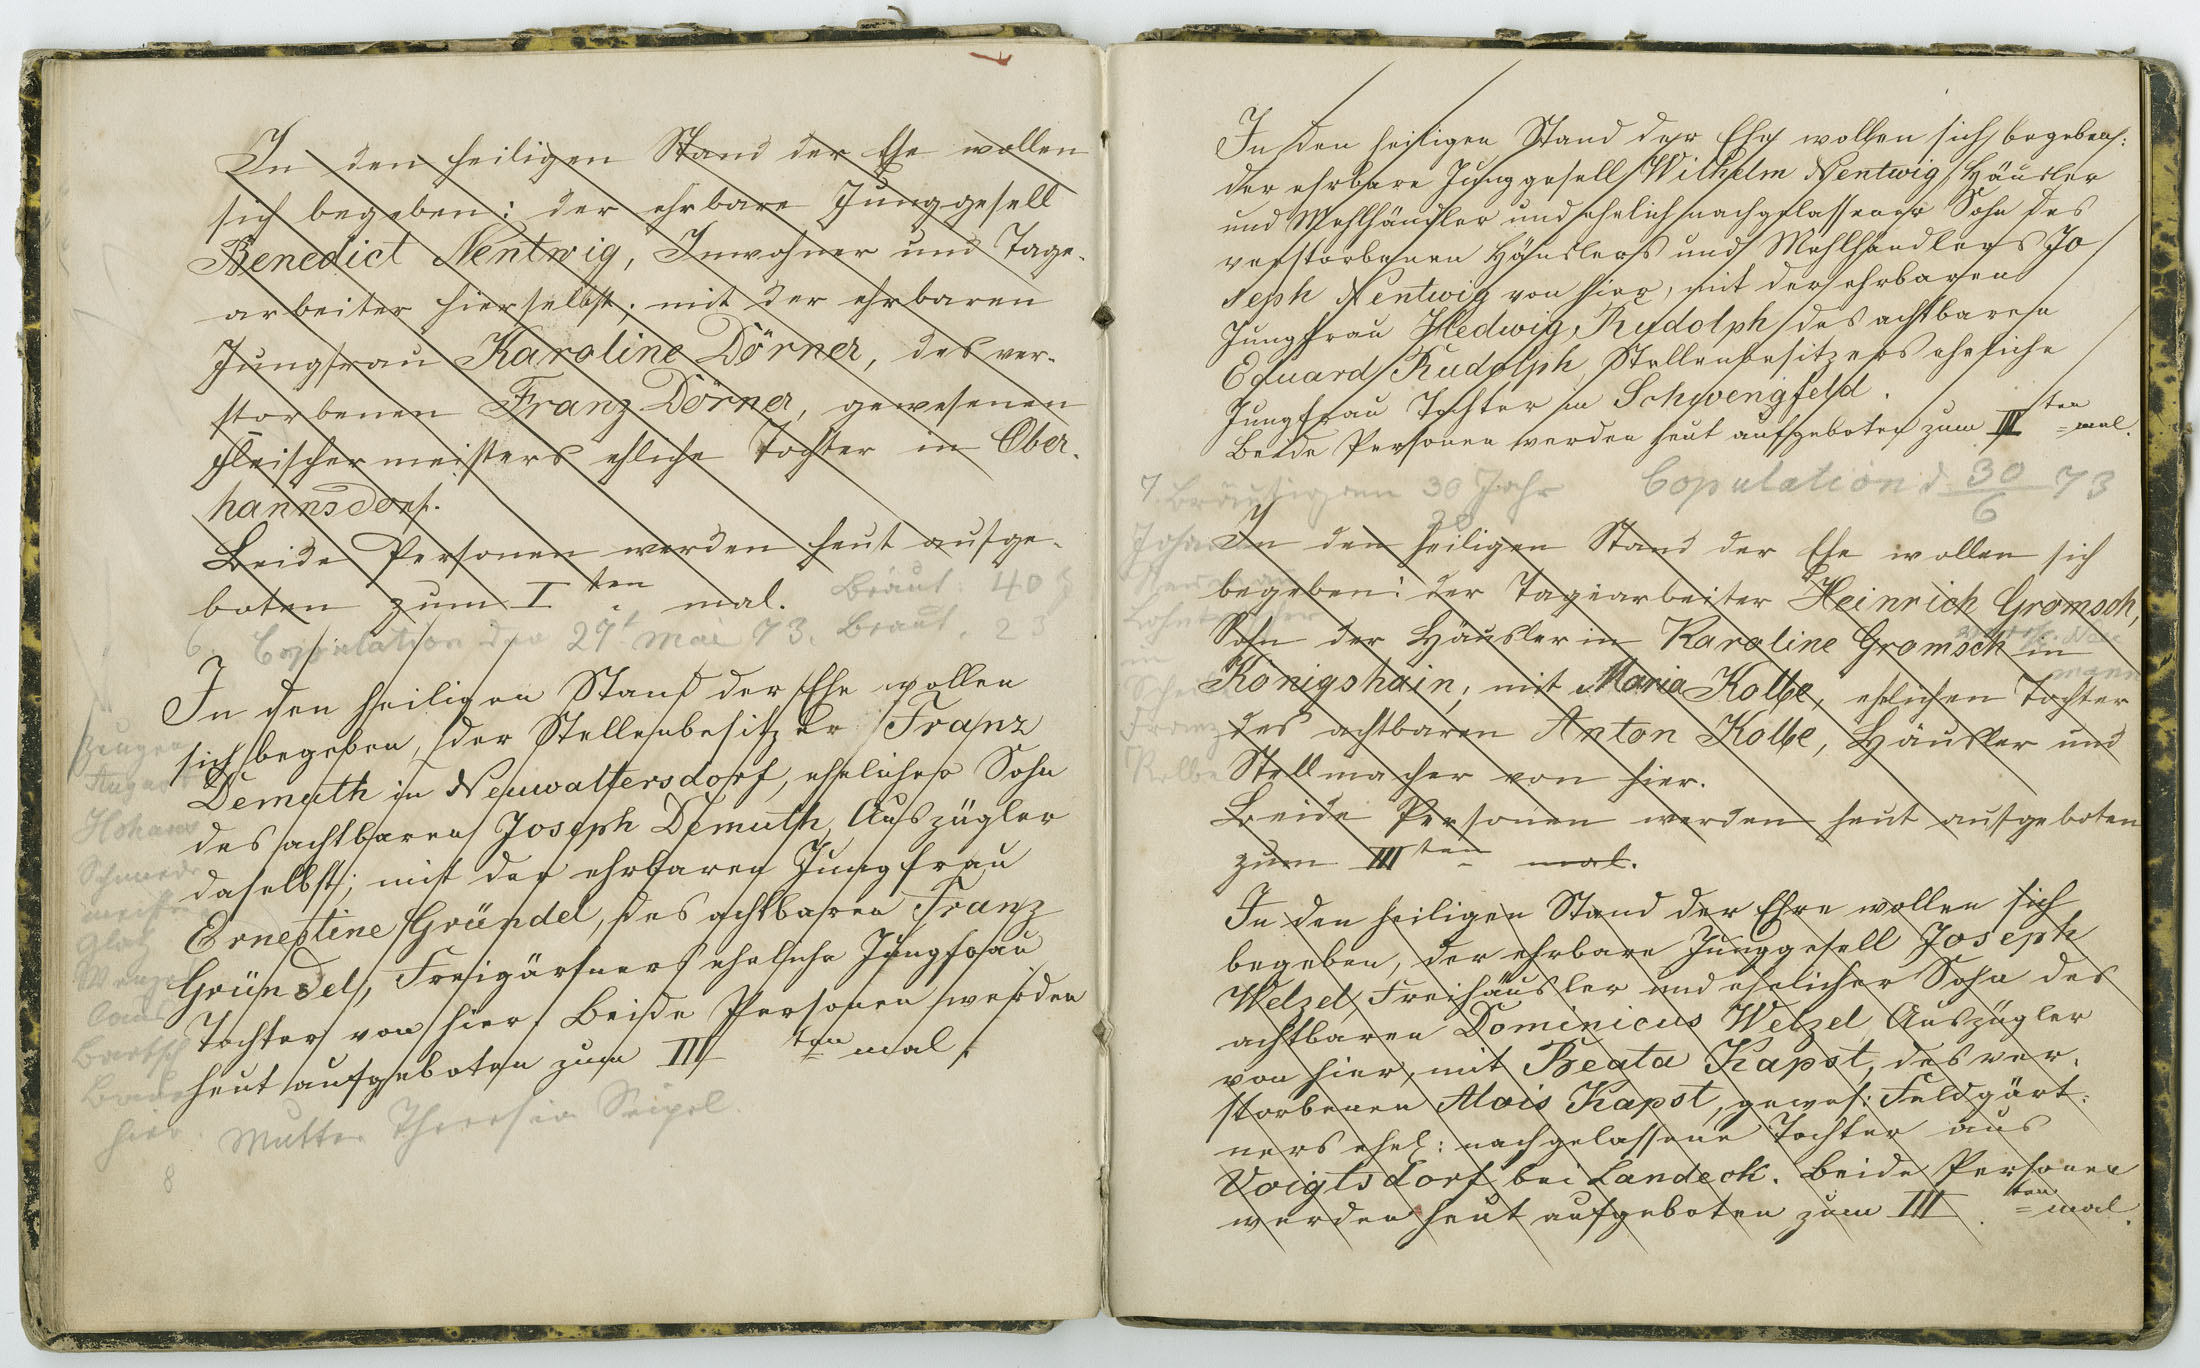 In den heiligen Stand der Ehe wollen
sich begeben: der ehrbare Junggesell
Benedict Nentwig, Inwohner und Tage-
arbeiter hierselbst; mit der ehrbaren
Jungfrau Karoline Dörner, des ver-
storbenen Franz Dörner, gewesenen
Fleischermeisters ehliche Tochter in Ober-
hannsdorf.
Beide Personen werden heut aufge-
boten zum I ten mal. Bräut: 40
6. Copulation den 27t Mai 73. Braut. 23
In den heiligen Stand der Ehe wollen
sich begeben, der Stellenbesitzer Franz
Demuth in Neuwaltersdorf, ehelicher Sohn
des achtbaren Joseph Demuth, Auszügler
daselbst; mit der ehrbaren Jungfrau
Ernestine Gründel, des achtbaren Franz
Gründel, Freigärtners eheliche Jungfrau
Tochter von hier. Beide Personen werden
heut aufgeboten zum III ten mal.
Zeugen
August
Schmiede
meister
Glatz
Bartsch
hier. Mutter Theresia Seipel.
8
In den heiligen Stand der Ehe wollen sich begeben:
der ehrbare Junggesell Wilhelm Nentwig, Häusler
und Mehlhändler und ehelich nachgelassener Sohn des
verstorbenen Häuslers und Mehlhändlers Jo
seph Nentwig von hier, mit der ehrbaren
Jungfrau Hedwig Rudolph des achtbaren
Eduard Rudolph, Stellenbesitzers eheliche
Jungfrau Tochter in Schwengfeld.
Beide Personen werden heut aufgeboten zum III ten mal.
7. Bräutigam 30 Jahr Copulation d 30/6 73
20
In den heiligen Stand der Ehe wollen sich
begeben: der Tagearbeiter Heinrich Gromsch,
Sohn der Häuslerin Karoline Gromsch in
Königshain; mit Maria Kolbe, ehelichen Tochter
des achtbaren Anton Kolbe, Häusler und
Stellmacher von hier.
Beide Personen werden heut aufgeboten
zum III ten mal.
in
Franz
Kolbe
In den heiligen Stand der Ehre wollen sich
begeben, der ehrbare Junggesell Joseph
Welzel, Freihäusler und ehelicher Sohn des
achtbaren Dominicus Welzel, Auszügler
von hier, mit Beata Kapst, des ver-
storbenen Alois Kapst, gewes: Feldgärt-
ners ehel: nachgelassene Tochter aus
Voigtsdorf bei Landeck. Beide Personen
werden heut aufgeboten zum III ten mal.